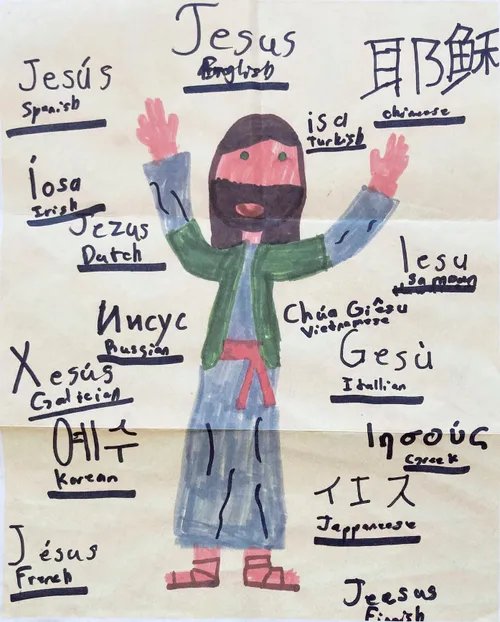 Jesus
English
Jesús
Spanish
耶穌
chinese
isa
Turkish
Íosa
Irish
Jezus
Dutch
Iesu
Samoan
Chúa Giêsu
Vietnamese
Иисус
Russian
Gesù
Itallian
Xesús
Galician
예수
Korean
Ιησούς
Greek
イエス
Jappanease
Jésus
French
Jeesus
Finish